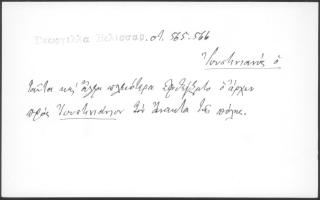 Γεωργιλλα Βελισσαρ. στ. 565-566
Ἰουστινιανός ὁ
ταῦτα καὶ ἄλλα πλειότερα ἐφθέγξατο ὁ ἄρχων
πρός Ἰουστινιανον τὸν ἄνακτα τῆς πόλης.